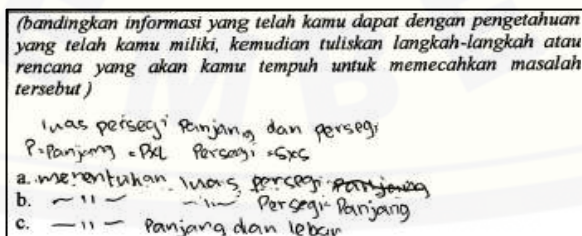 (bandingkan informasi yang telah kamu dapat dengan pengetahuan
yang telah kamu miliki, kemudian tuliskan langkah-langkah atau
rencana yang akan kamu tempuh untuk memecahkan masalah
tersebut )
luas persegi panjang dan persegi
P. Panjang = PxL Persegi = SxS
a. menentukan luas persegi panjang
b. — " — — " — Persegi Panjang
c. — " — Panjang dan lebar